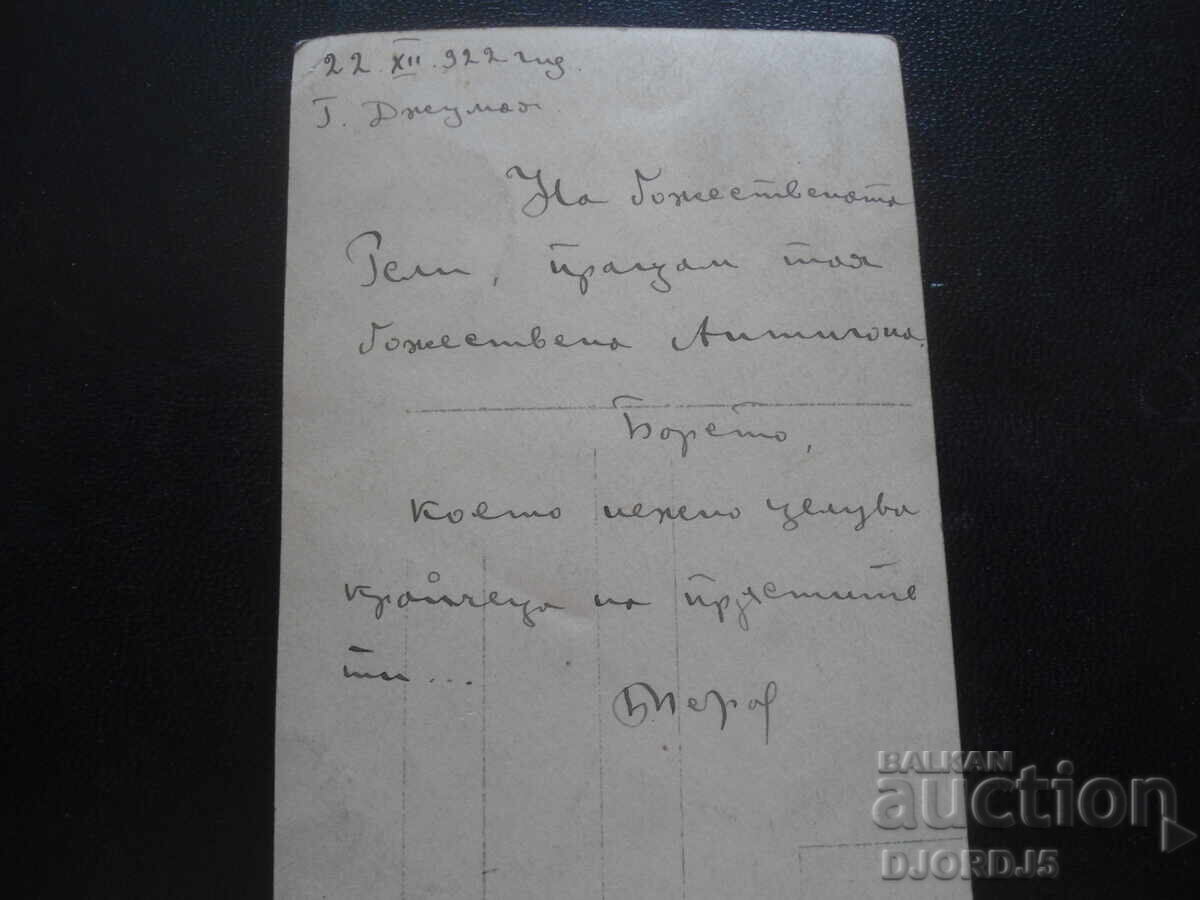 22. XII. 922 год.
Г. Джумая.
На божествената
Гели, пращам тая
божествена Антигона.
Борето,
което нежно целува
крайчеца на пръстите
ти...
BALKAN
auction
DJORDJ5